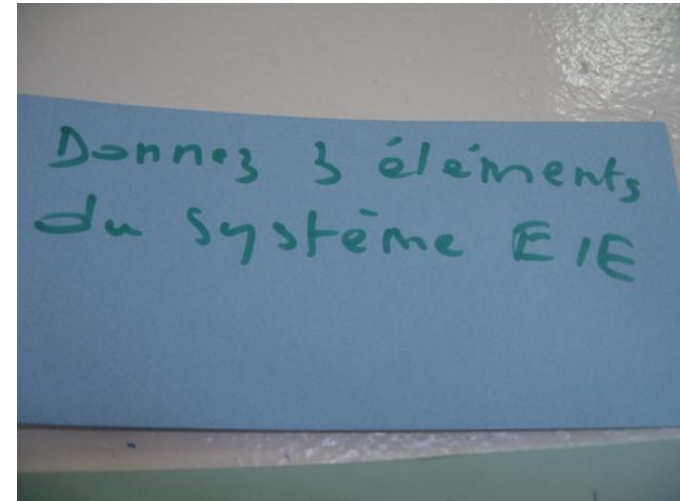 Donnez 3 éléments
du système EIE